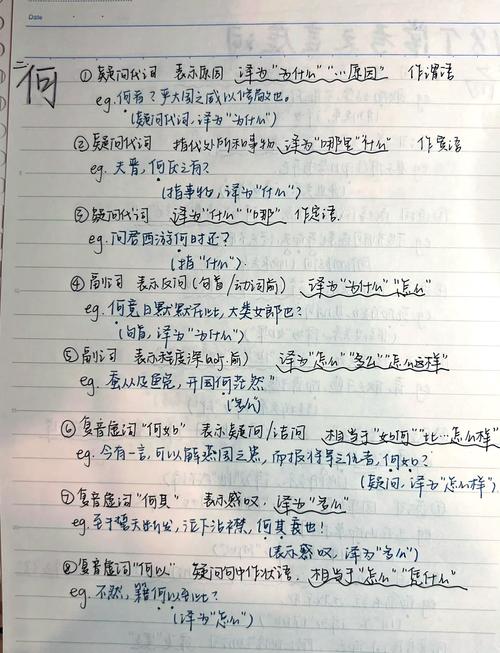 Date
二 何
① 疑问代词 表示原因 译为"为什么""…原因" 作谓语
eg. 何者？严大国之威以修敬也。
(疑问代词，译为"为什么")
② 疑问代词 指代处所和事物，译为"哪里""什么" 作宾语
eg. 夫晋，何厌之有？
(指事物，译为"什么")
③ 疑问代词 译为"什么""哪" 作定语.
eg. 问君西游何时还？
(指"什么").
④ 副词 表示反问(句首/动词前) 译为"为什么""怎么"
eg. 何竟日默默在此，大类女郎也？
(句首，译为"为什么")
⑤ 副词 表示程度深(adj.前) 译为"怎么""多么""怎么这样"
eg. 蚕丛及鱼凫，开国何茫然"
("多么")
⑥ 复音虚词"何如" 表示疑问/诘问 相当于"如何""比…怎么样"
eg. 今有一言，可以解燕国之患，而报将军之仇者，何如？
(疑问，译为"怎么样")
⑦ 复音虚词"何其" 表示感叹，译为"多么"
eg. 至于誓天断发，泣下沾襟，何其衰也！
(表示感叹，译为"多么")
⑧ 复音虚词"何以" 疑问句中作状语. 相当于"怎么""凭什么"
eg. 不然，籍何以至此？
(译为"怎么")